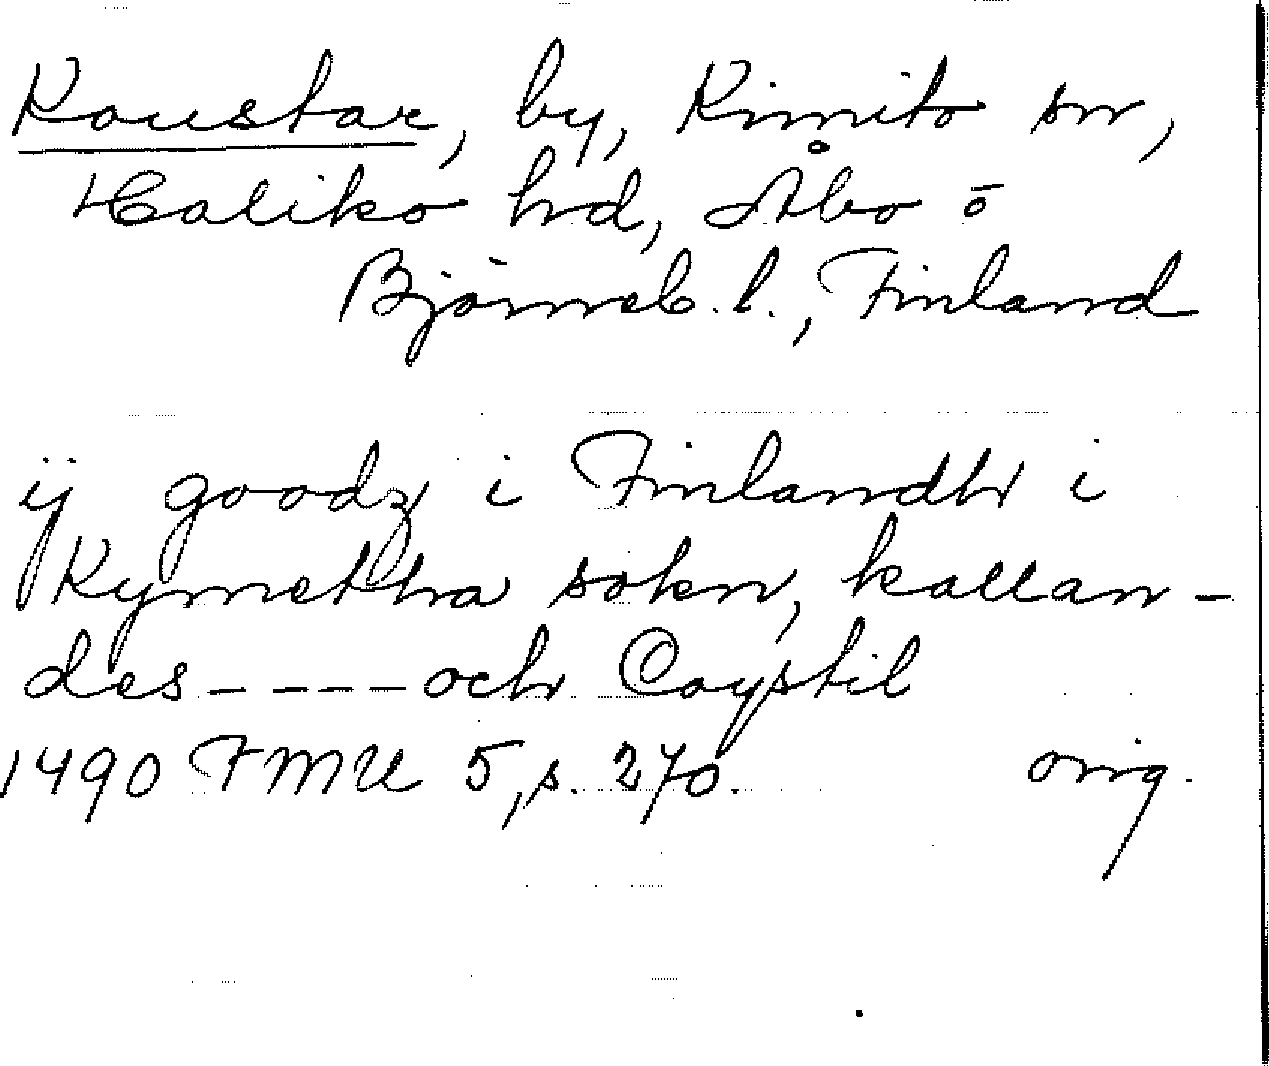 Koustar, by, Kimito sn,
Haliko hd, Åbo o
Björneb. l., Finland
ij goodz i Finlandh i
Kymettha sokn, kallan-
des - - - - och Coystil
1490 FMU 5, s. 270. orig.